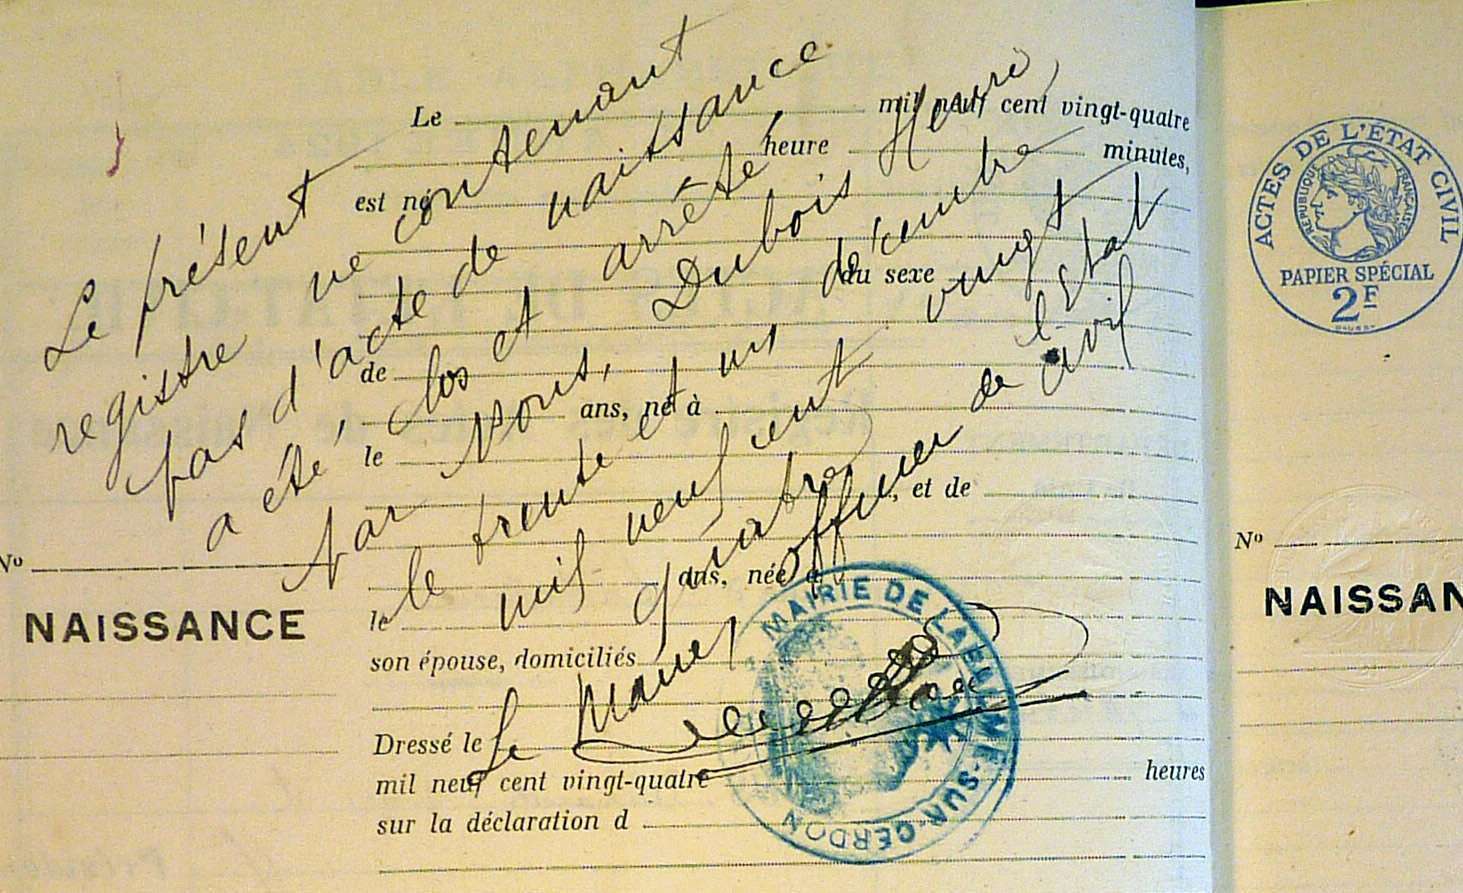 Le présent
registre ne contenant
pas d'acte de naissance
a été clos et arrêté
par Nous, Dubois Henri,
le trente et un décembre
mil neuf cent vingt
quatre
Le Maire, officier de l'Etat
civil
Le mil neuf cent vingt-quatre
heure minutes,
est né
du sexe
de
ans, né à
le
, et de
ans, née à
le
son épouse, domiciliés
Dressé le
mil neuf cent vingt-quatre heures
sur la déclaration d
No
NAISSANCE
MAIRIE DE LABALME-SUR-CERDON
ACTES DE L'ÉTAT CIVIL
RÉPUBLIQUE FRANÇAISE
PAPIER SPÉCIAL
2F
No
NAISSAN